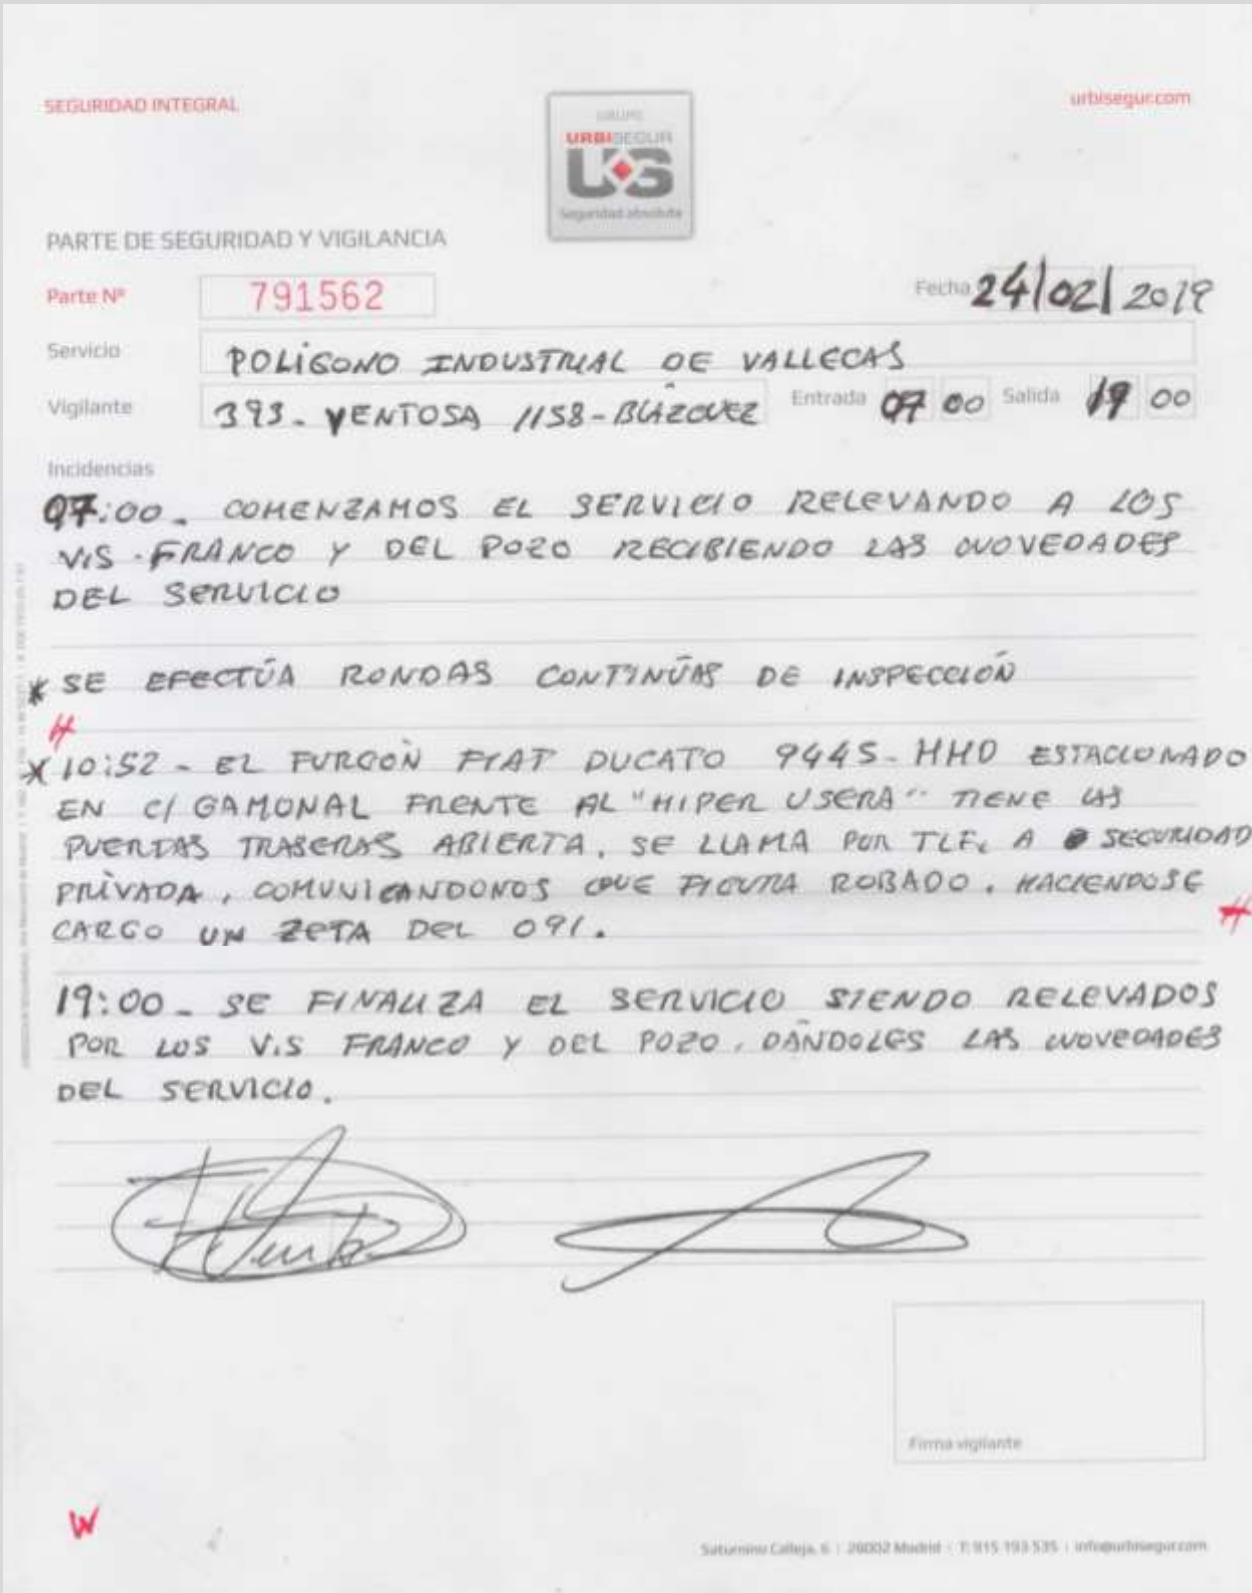 SEGURIDAD INTEGRAL
urbisegur.com
GRUPO
URBISEGUR
US
Seguridad absoluta
PARTE DE SEGURIDAD Y VIGILANCIA
Parte Nº 791562
Fecha 24/02/2019
Servicio POLÍGONO INDUSTRIAL DE VALLECAS
Vigilante 393- VENTOSA 1158-BLÁZQUEZ Entrada 07 00 Salida 19 00
Incidencias
07:00. COMENZAMOS EL SERVICIO RELEVANDO A LOS
V.S. FRANCO Y DEL POZO RECIBIENDO LAS NOVEDADES
DEL SERVICIO
* SE EFECTÚA RONDAS CONTINÚAS DE INSPECCIÓN
* 10:52 - EL FURGÓN FIAT DUCATO 9445-HHD ESTACIONADO
EN C/ GAMONAL FRENTE AL "HIPER USERA" TIENE LAS
PUERTAS TRASERAS ABIERTA. SE LLAMA POR TLF. A SEGURIDAD
PRIVADA, COMUNICANDONOS QUE FIGURA ROBADO. HACIENDOSE
CARGO UN ZETA DEL 091.
19:00 - SE FINALIZA EL SERVICIO SIENDO RELEVADOS
POR LOS V.S FRANCO Y DEL POZO, DÁNDOLES LAS NOVEDADES
DEL SERVICIO.
Firma vigilante
W
Saturnino Calleja, 6 | 28002 Madrid | T: 915 193 535 | info@urbisegur.com